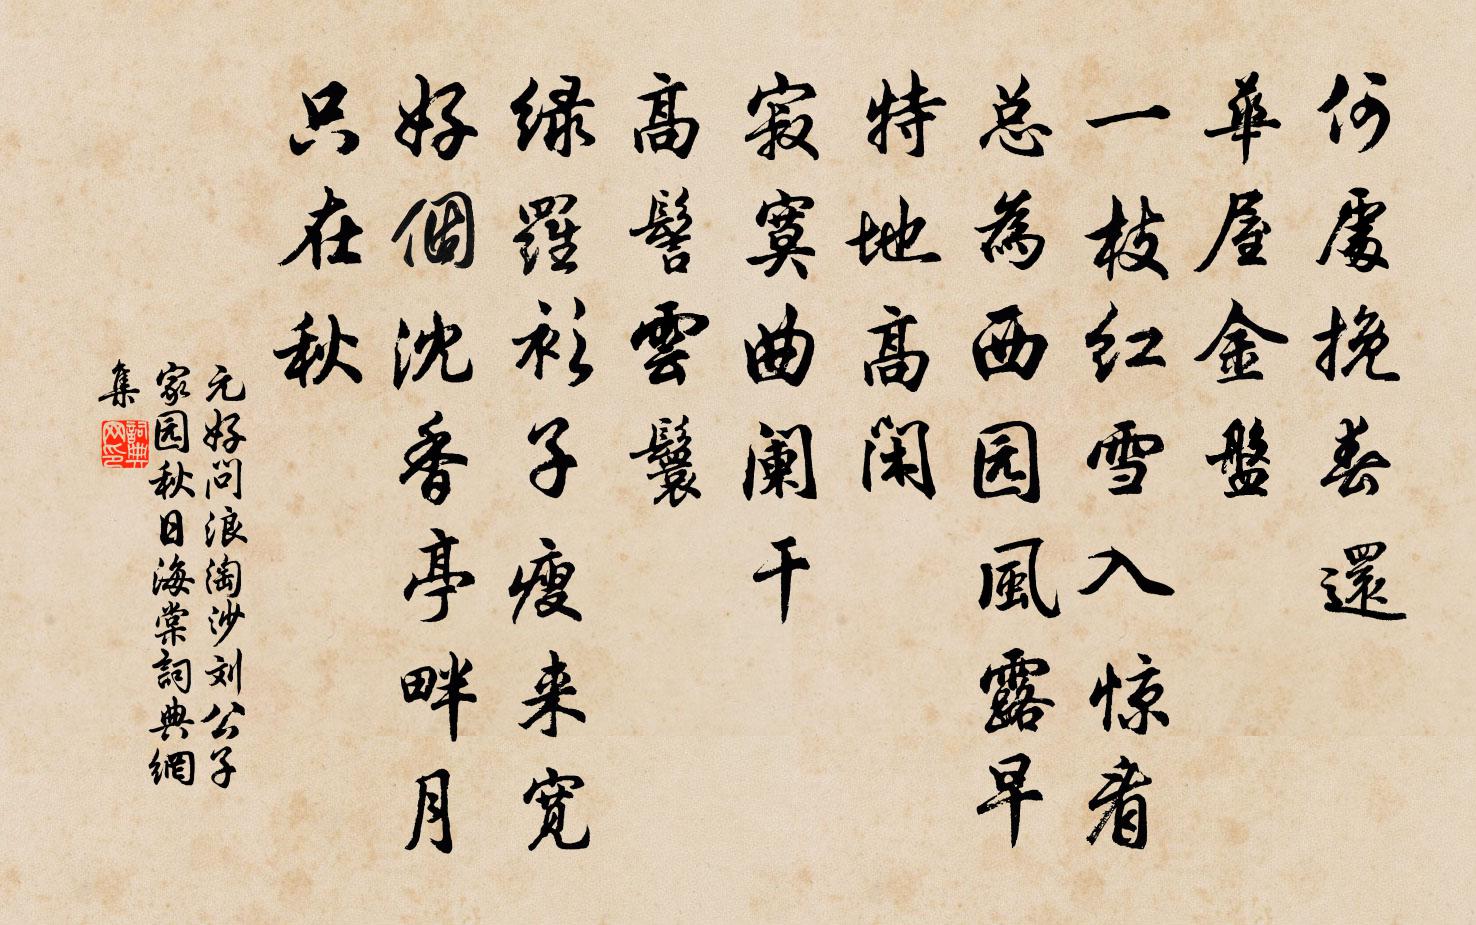 何處挽春還
華屋金盤
一枝红雪入惊看
总為西园風露早
特地高闲
寂寞曲阑干
高髻雲鬟
绿羅衫子瘦来宽
好個沈香亭畔月
只在秋
元好问浪淘沙刘公子
家园秋日海棠詞典網
集
詞典
网印